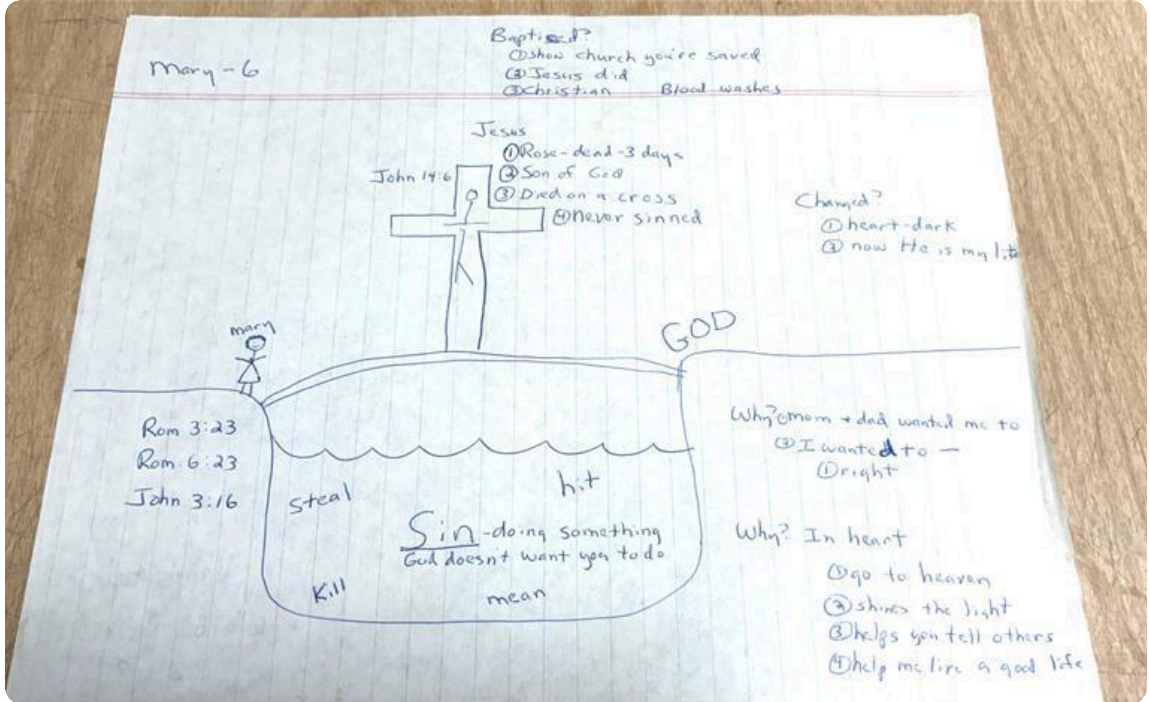 Mary - 6
Baptised?
① show church you're saved
② Jesus did
③ Christian Blood washes
Jesus
① Rose - dead - 3 days
John 14:6
② Son of God
③ Died on a cross
④ never sinned
Changed?
① heart - dark
② now He is my life
mary
GOD
Rom 3:23
Rom 6:23
John 3:16
steal
hit
Sin - doing something
God doesn't want you to do
Kill
mean
Why? ① mom + dad wanted me to
② I wanted to —
① right
Why? In heart
① go to heaven
② shines the light
③ helps you tell others
④ help me live a good life